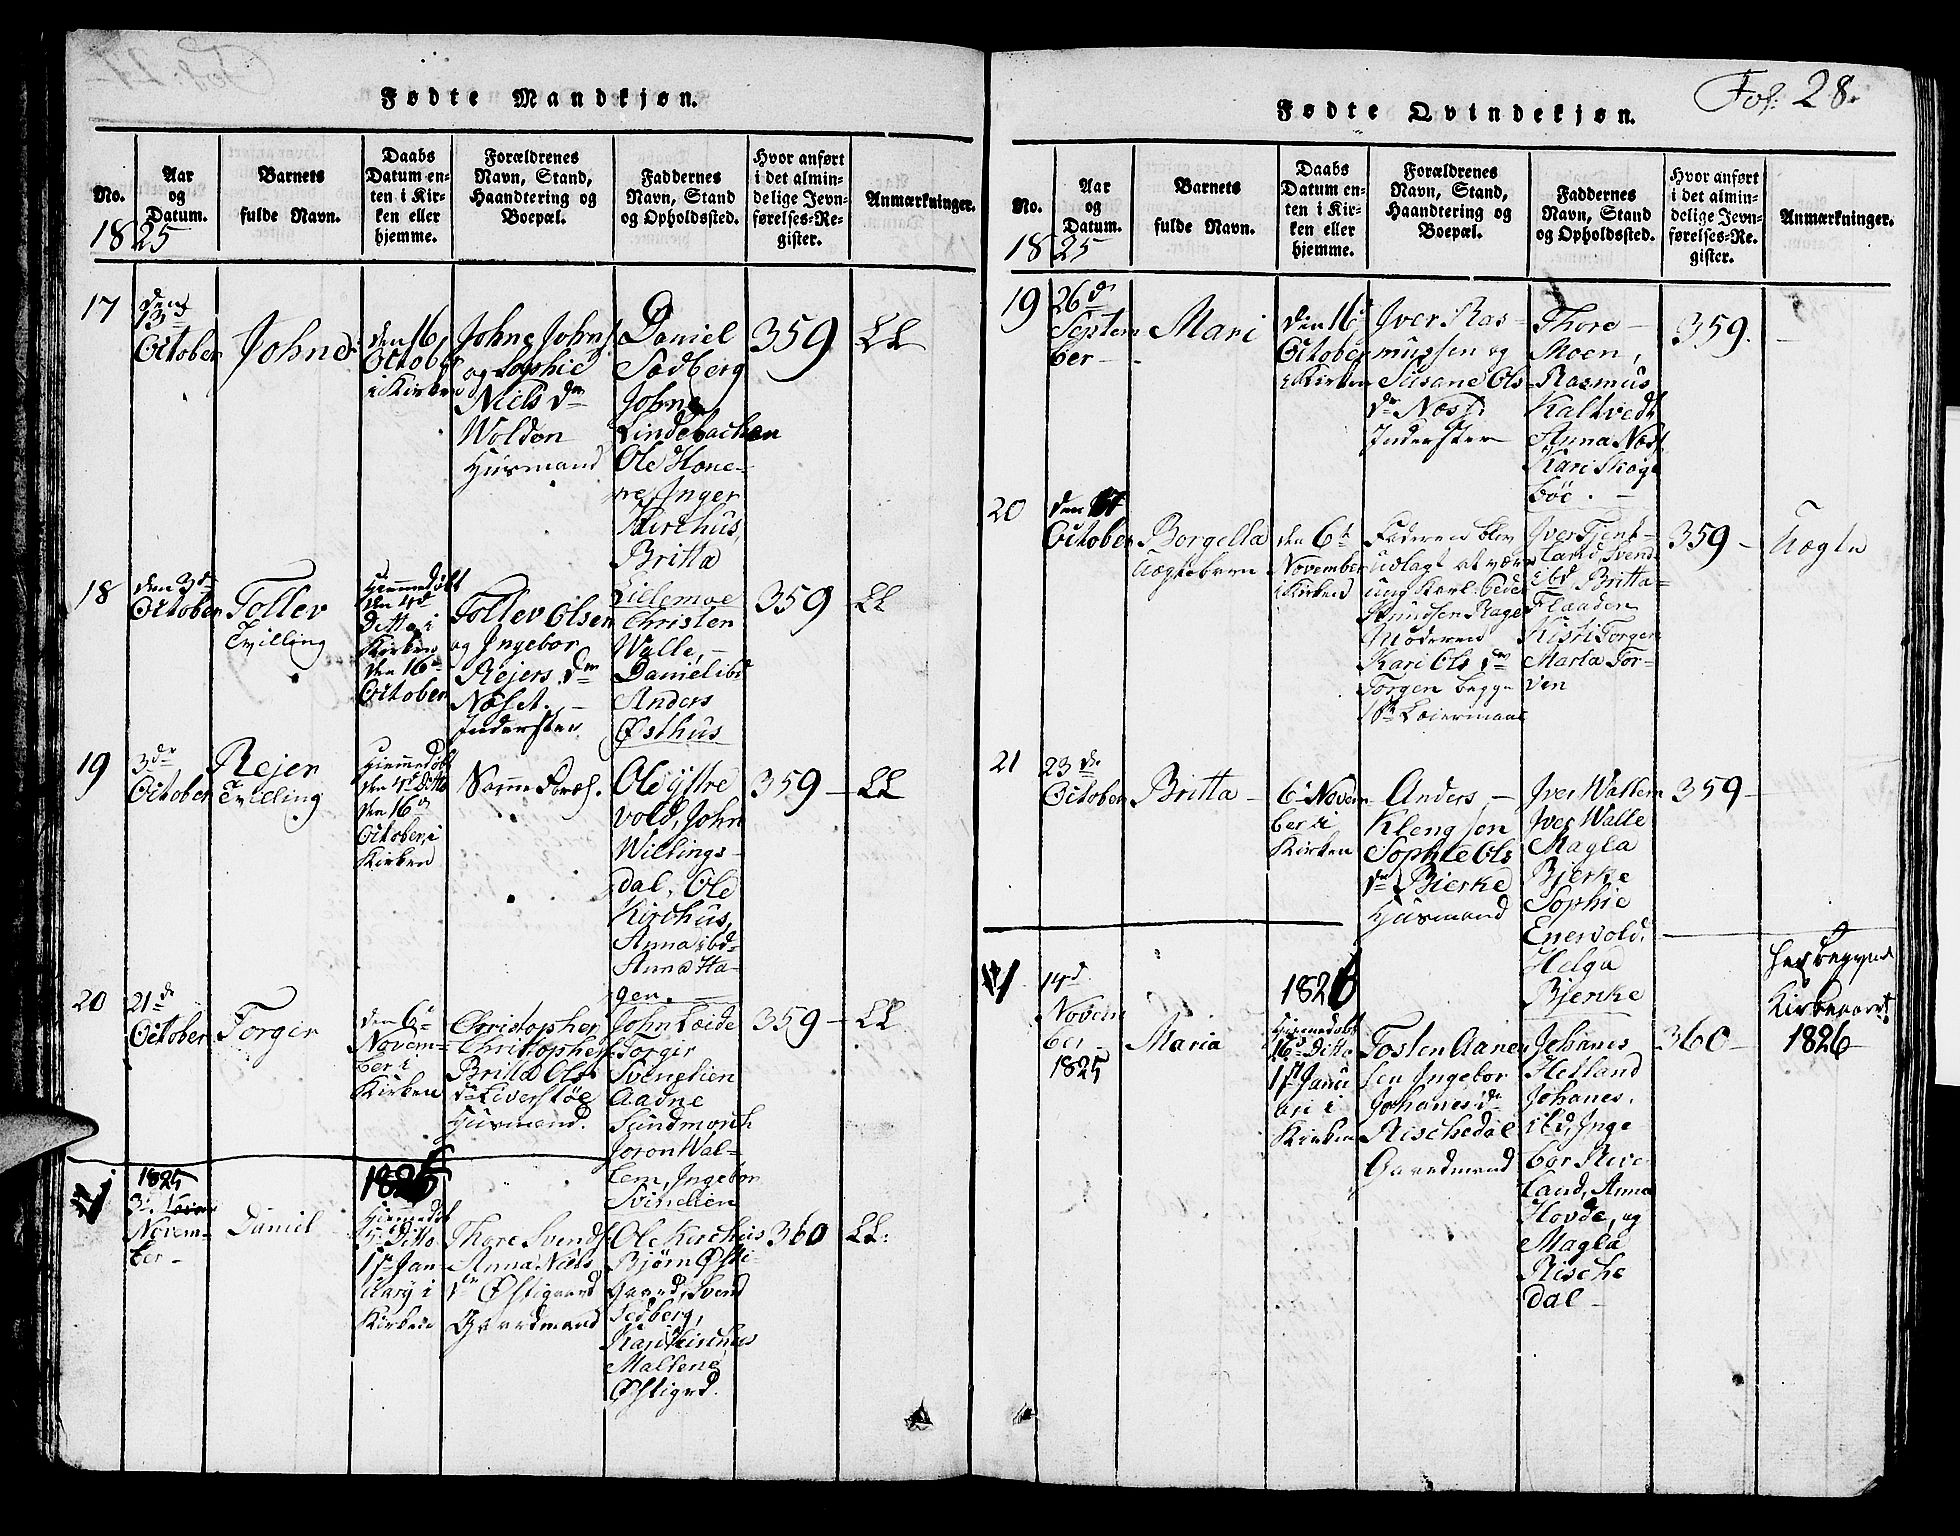 Fol: 28.
Fødte Mandkjøn.
No.
Aar
og
Datum.
Barnets
fulde Navn.
Daabs
Datum en-
ten i Kir-
ken eller
hjemme.
Forældrenes
Navn, Stand,
Haandtering og
Boepæl.
Faddernes
Navn, Stand
og Opholdssted.
Hvor anført
i det almin-
delige Jevn-
førelses-Re-
gister.
Anmærkninger.
1825
17
den
13d
October
Johne
den 16,
October
i Kirken
Johne Johns.
og Sophie
Nils dr
Woldon
Huusmand
Daniel
Sodberg
Johne
Lindebachen
Ole Hone-
re, Inger
Kirchus,
Britta
Lillemoe
359
LL
18
den 3de
October
Tollev
Tvilling
Hiemmedøbt
den 4d
Ditto, i
Kirken
den 16de
October
Tollev Olsen
og Ingebor
Rejers. dr
Næset. -
Inderster
Christen
Walle, -
Daniel ibd
Anders
Østhus
359
LL
19
3de
October
Rejer
Tvilling
Hiemmedøbt
den 4d Ditto
den 16d
October, i
Kirken
Samme Foræl.
Ole Ystre
vold, John
Willings-
dal, Ole
Kirchus,
Anna ibd-
Anna Ha-
gen. -
359 -
LL
20
21de
October
Torgir
den 6te
Novem-
ber i
Kirken
Christopher
Christophers.
Britta Ols
dr Liverstøe
Huusmand.
John Loide
Torgir
Svenelien
Aadne
Sundmork
Joron Wal-
lem, Ingebor
Svinelien
359 -
LL
1
1825
3d
Novem-
ber -
Daniel
1826
Hiemmedøbt
5d Ditto
1st Jan
uary i
Kirken
Thore Svends.
Anna Niels
dr Østigaard
Gaardmand
Ole Kirchus
Bjørn Østi-
Gaard, Svend
Sedberg,
Kari Kirchus
Maltene
Østigrd.
360
LL.
Fødte Qvindekjøn.
No.
Aar
og
Datum.
Barnets
fulde Navn.
Daabs
Datum en-
ten i Kir-
ken eller
hjemme.
Forældrenes
Navn, Stand,
Haandtering og
Boepæl.
Faddernes
Navn, Stand
og Opholdssted.
Hvor anført
i det almin-
delige Jevn-
førelses-Re-
gister.
Anmærkninger.
1825
19
26d
Septem
ber -
Mari
den 16
October
i Kirken
Iver Ras-
mussen og
Susane Ols-
dr Næss
Inderster
Thore -
Moen,
Rasmus
Kaltvedt
Anna Næst
Kari Skoge
böe. -
359.
20
den
October
Borgella
Uægtebarn
den 6te
November
i Kirken
Faderen blev
udlagt at være
ung Karl. Peder
Knudsen Rage
Moderen
Kari Ols dr
Torgen begge
1st Leiermaal
Iver Tjent-
land, Svend
ibd Britta
Flaaden
Kisti Torgen
Marta Tor-
ven
359 -
Uægte
21
23de
October
Britta -
6te Novem
ber i
Kirken
Anders -
Klengson
Sophie Ols
dr Bjerke
Huusmand
Iver Wallem
Iver Walle
Magla
Bjerke
Sophie
Enervold.
Helga
Bjerke
359 -
1
14d
Novem
ber -
1825
Maria
1826
Hiemmedøbt
16d Ditto
1st Janu
ari i
Kirken
Tosten Aanen
sen Ingebor
Johanes dr
Rischedal
Gaardmand
Johanes
Hetland
Johanes.
ibd, Inge
bor Rive-
land, Anna
Hovde, og
Magla
Rische
dal -
360 -
Her begynd
Kirkeaaret
1826